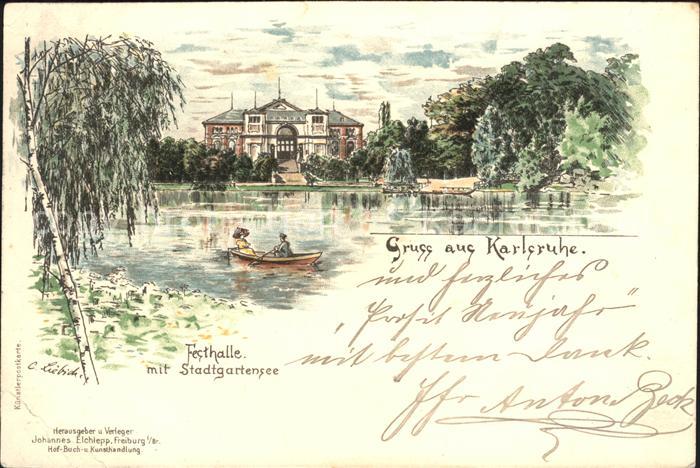 Gruss aus Karlsruhe.
und herzliches
"Prosit Neujahr"
mit bestem Dank.
Ihr Anton Beck
Festhalle.
mit Stadtgartensee
C. Liebich
Künstlerpostkarte.
Herausgeber u Verleger
Johannes Elchlepp, Freiburg i/Br.
Hof-Buch-u. Kunsthandlung.